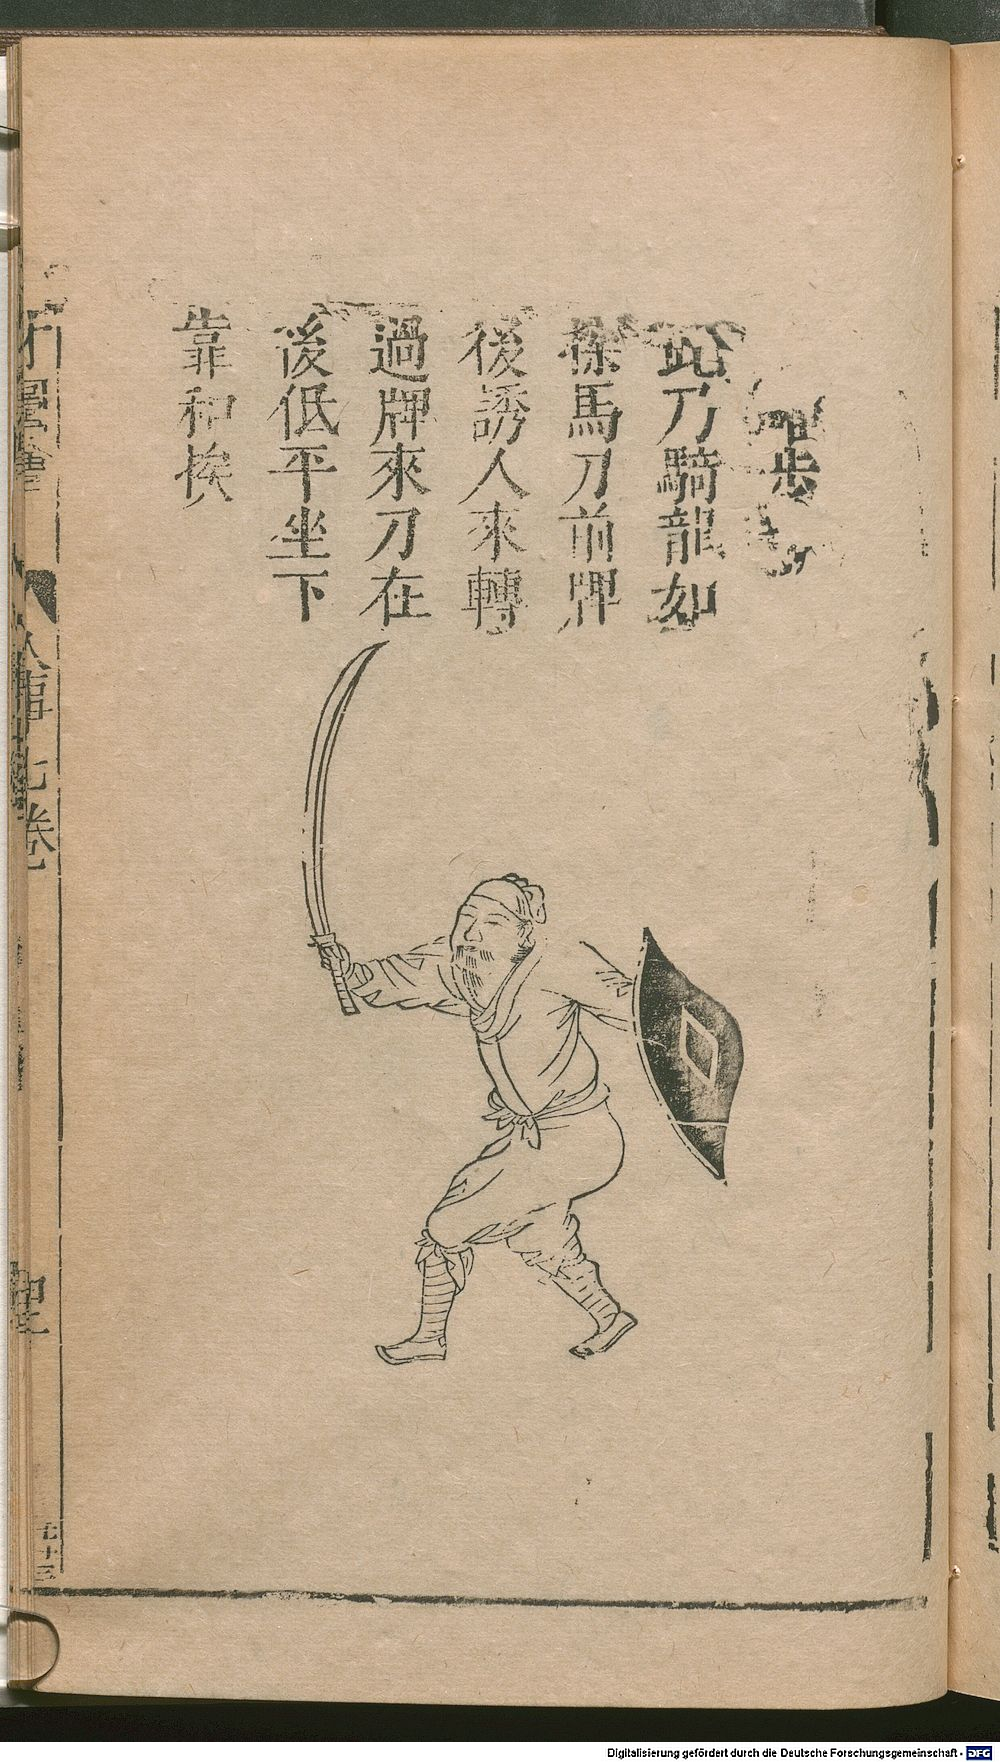 步
此乃騎龍如
操馬刀前牌
後誘人來轉
過牌來刀在
後低平坐下
靠和挨
人事七卷
七十三
Digitalisierung gefördert durch die Deutsche Forschungsgemeinschaft - DFG